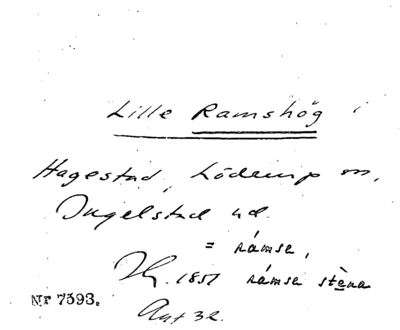 Lille Ramshög i
Hagestad, Löderup sn,
Ingelstad hd.
= rámsa,
Jh. 1851 rámsa stèna
Nr 7593.
Ant 32.